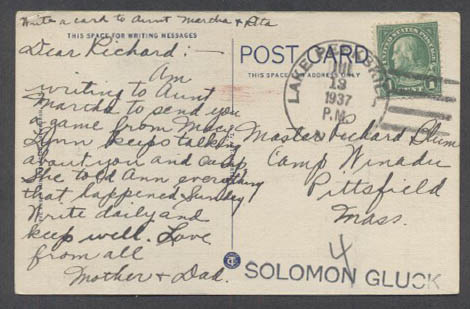 Write a card to Aunt Martha & Rita
THIS SPACE FOR WRITING MESSAGES
Dear Richard: —
Am
writing to Aunt
Martha to send you
a game from Macy
Lynn keeps talking
about you and camp
She told Ann everything
that happened Sunday
Write daily and
keep well. Love
from all
Mother & Dad.
POST CARD
THIS SPACE FOR ADDRESS ONLY
LAKE
JUL
13
1937
P.M.
UNITED STATES POSTAGE
1
Master Richard Blum
Camp Winadu
Pittsfield
Mass.
4
SOLOMON GLUCK